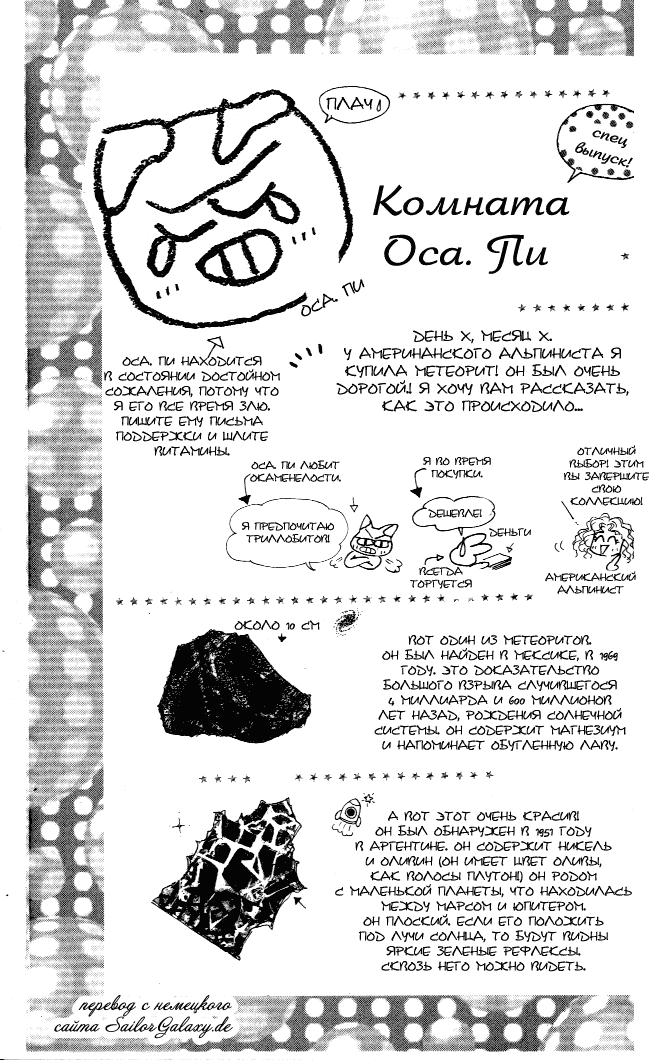 ПЛАЧ
спец
выпуск!
Комната
Оса. Пи
ОСА. ПИ
ДЕНЬ X, МЕСЯЦ X.
У АМЕРИНАНСКОГО АЛЬПИНИСТА Я
КУПИЛА МЕТЕОРИТ! ОН БЫЛ ОЧЕНЬ
ДОРОГОЙ! Я ХОЧУ ВАМ РАССКАЗАТЬ,
КАК ЭТО ПРОИСХОДИЛО...
ОСА. ПИ НАХОДИТСЯ
В СОСТОЯНИИ ДОСТОЙНОМ
СОЖАЛЕНИЯ, ПОТОМУ ЧТО
Я ЕГО ВСЕ ВРЕМЯ ЗЛЮ.
ПИШИТЕ ЕМУ ПИСЬМА
ПОДДЕРЖКИ И ШЛИТЕ
ВИТАМИНЫ.
ОСА. ПИ ЛЮБИТ
ОКАМЕНЕЛОСТИ.
Я ПРЕДПОЧИТАЮ
ТРИЛЛОБИТОВ!
Я ВО ВРЕМЯ
ПОКУПКИ.
ДЕШЕВЛЕ!
ДЕНЬГИ
ВСЕГДА
ТОРГУЕТСЯ
ОТЛИЧНЫЙ
ВЫБОР! ЭТИМ
ВЫ ЗАВЕРШИТЕ
СВОЮ
КОЛЛЕКЦИЮ!
АМЕРИКАНСКИЙ
АЛЬПИНИСТ
ОКОЛО 10 СМ
ВОТ ОДИН ИЗ МЕТЕОРИТОВ.
ОН БЫЛ НАЙДЕН В МЕКСИКЕ, В 1969
ГОДУ. ЭТО ДОКАЗАТЕЛЬСТВО
БОЛЬШОГО ВЗРЫВА СЛУЧИВШЕГОСЯ
4 МИЛЛИАРДА И 600 МИЛЛИОНОВ
ЛЕТ НАЗАД, РОЖДЕНИЯ СОЛНЕЧНОЙ
СИСТЕМЫ. ОН СОДЕРЖИТ МАГНЕЗИУМ
И НАПОМИНАЕТ ОБУГЛЕННУЮ ЛАВУ.
А ВОТ ЭТОТ ОЧЕНЬ КРАСИВ!
ОН БЫЛ ОБНАРУЖЕН В 1951 ГОДУ
В АРГЕНТИНЕ. ОН СОДЕРЖИТ НИКЕЛЬ
И ОЛИВИН (ОН ИМЕЕТ ЦВЕТ ОЛИВЫ,
КАК ВОЛОСЫ ПЛУТОН!) ОН РОДОМ
С МАЛЕНЬКОЙ ПЛАНЕТЫ, ЧТО НАХОДИЛАСЬ
МЕЖДУ МАРСОМ И ЮПИТЕРОМ.
ОН ПЛОСКИЙ. ЕСЛИ ЕГО ПОЛОЖИТЬ
ПОД ЛУЧИ СОЛНЦА, ТО БУДУТ ВИДНЫ
ЯРКИЕ ЗЕЛЕНЫЕ РЕФЛЕКСЫ.
СКВОЗЬ НЕГО МОЖНО ВИДЕТЬ.
перевод с немецкого
сайта SailorGalaxy.de